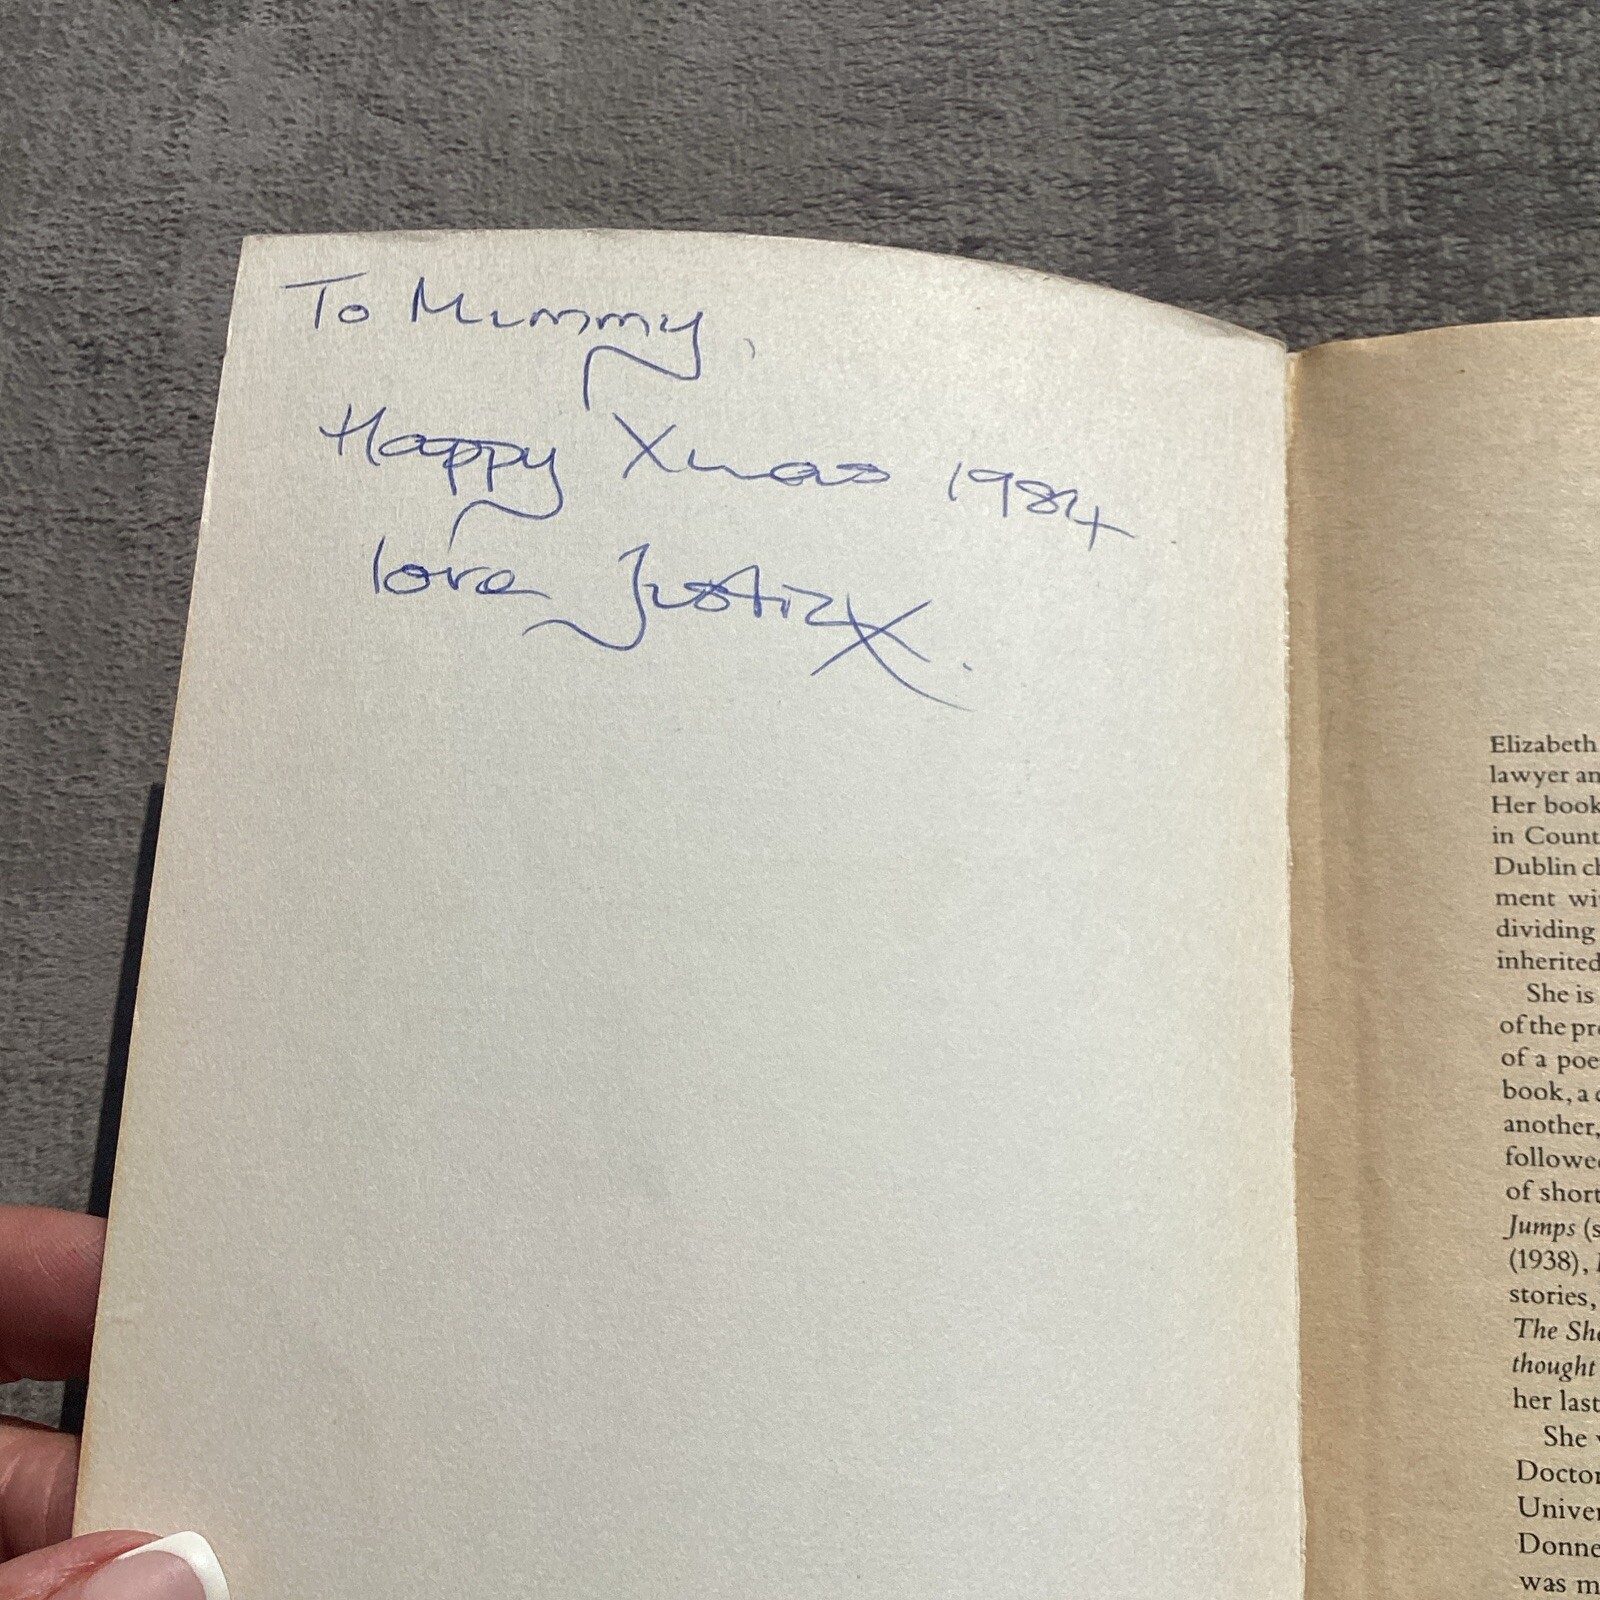 To Mummy,
Happy Xmas 1984
love Justin X.
Elizabeth
lawyer an
Her book
in Count
Dublin ch
ment wi
dividing
inherited
She is
of the pr
of a poe
book, a
another,
followe
of short
Jumps (s
(1938),
stories,
The Sh
thought
her last
She
Doctor
Univer
Donne
was m